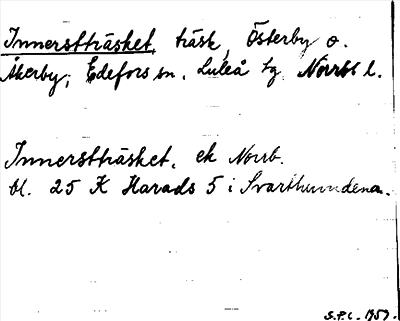 Innerstträsket, träsk, Österby o.
Åkerby, Edefors sn, Luleå tg Norrb l.
Innerstträsket, ek Norrb.
bl. 25 K Harads 5 i Svartlunndena.
S.P.L. 1959.